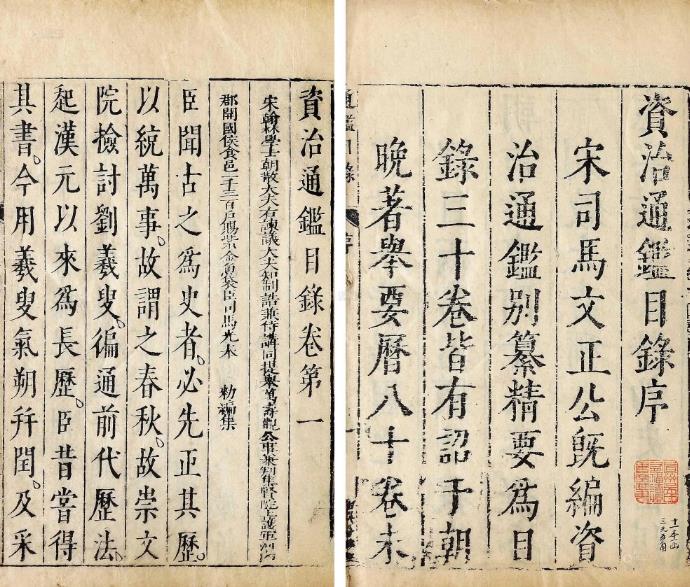 資治通鑑目錄序
宋司馬文正公既編資
治通鑑別纂精要為目
錄三十卷皆有詔于朝
晚著舉要曆八十卷未
通鑑目錄
序
資治通鑑目錄卷第一
宋翰林學士朝散大夫右諫議大夫知制誥兼侍講同提舉萬壽觀公事兼判集賢院上護軍河內
郡開國侯食邑一千三百戶賜紫金魚袋臣司馬光奉 勅編集
臣聞古之為史者。必先正其歷。
以統萬事。故謂之春秋。故崇文
院檢討劉羲叟。徧通前代歷法。
起漢元以來為長歷。臣昔嘗得
其書。今用羲叟氣朔并閏。及采